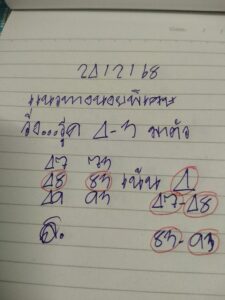 24/2/68
แนวทางนอยพิเศษ
วิ่ง...รูด 4-3 มาตัว
47 73
48 83 เน้น 4
49 93 47-48
83-93